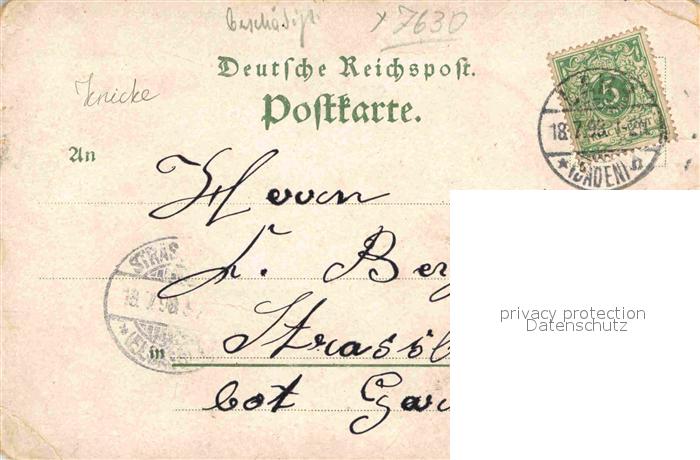 Beschädigt x 7630
Knicke
Deutsche Reichspost.
Postkarte.
5
18.7.98.
* (BADEN)
An
Herrn
L. Ber
STRAS
18.7.98.
in Strass
bot Gar
privacy protection
Datenschutz